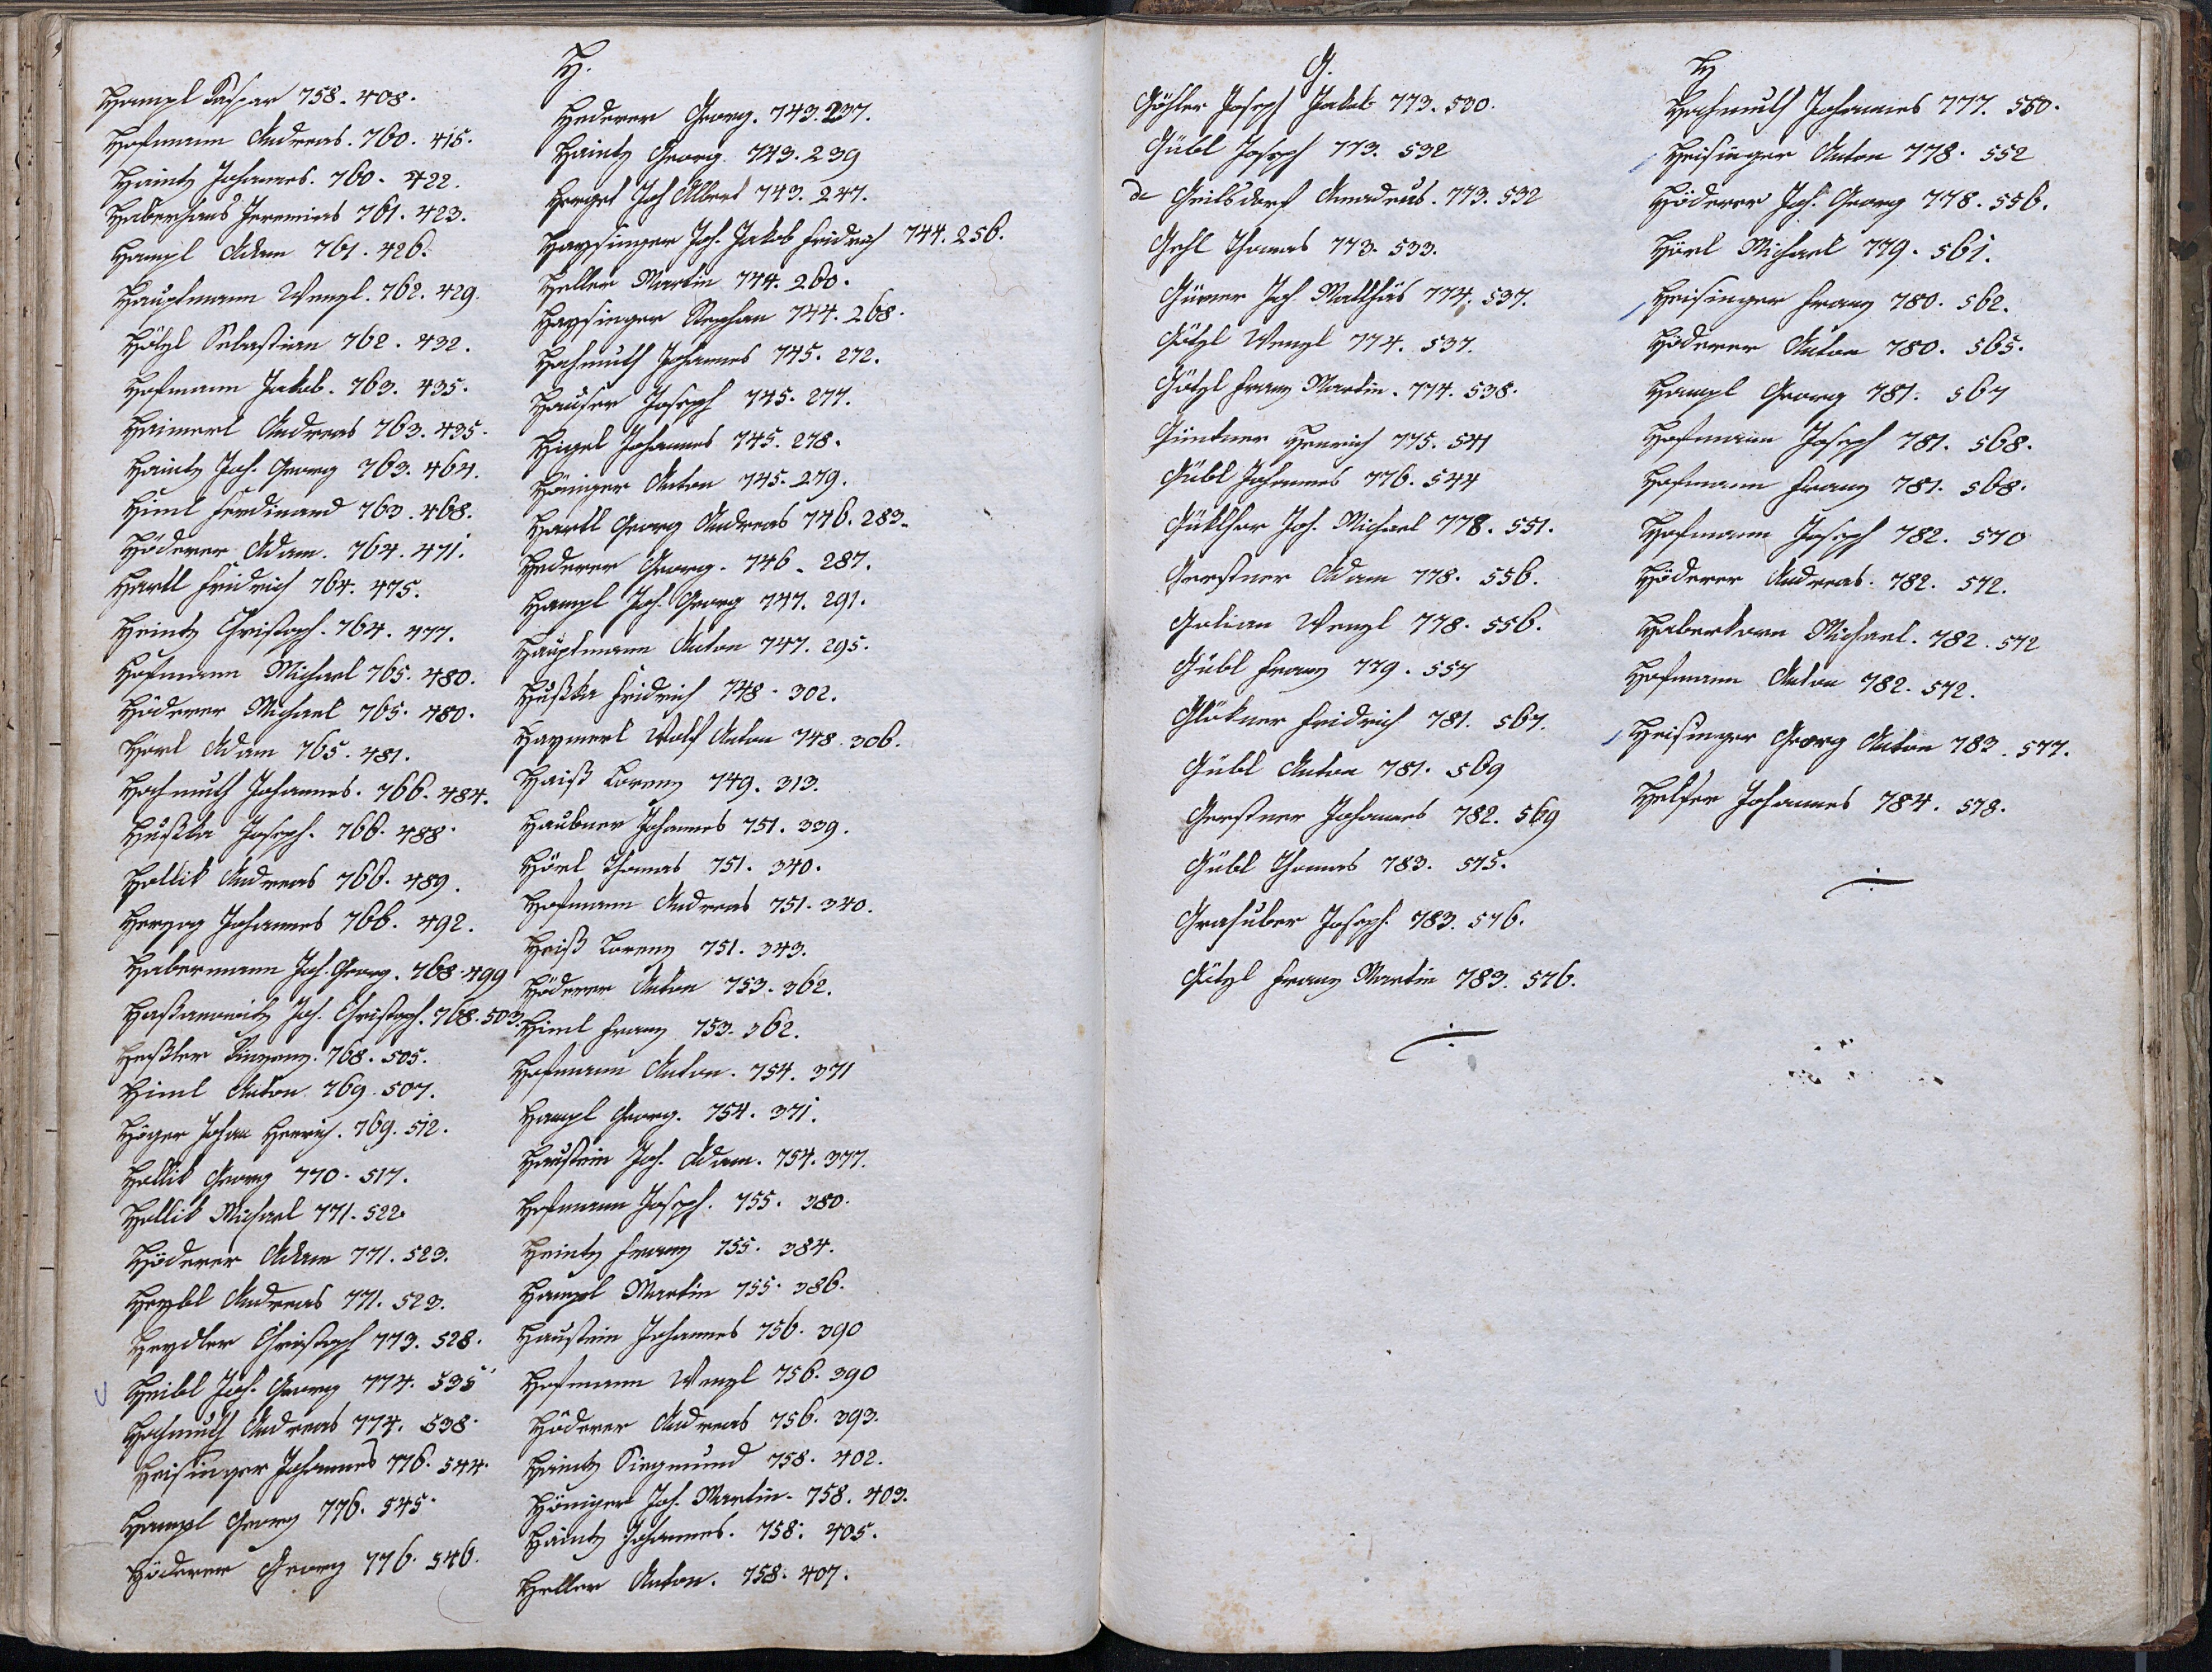 H.
Hampl Kaspar 758. 408.
Hofmann Andreas. 760. 415.
Haintz Johannes. 760. 422.
Haberhans Jeremias 761. 423.
Hampl Adam 761. 426.
Hauptmann Wenzl. 762. 429.
Hölzl Sebastian 762. 432.
Hofmann Jakob. 763. 435.
Haimerl Andreas 763. 435.
Haintz Joh. Georg 763. 464.
Himl Ferdinand 763. 468.
Höderer Adam. 764. 471.
Hartl Fridrich 764. 475.
Heintz Christoph. 764. 477.
Hofmann Michael 765. 480.
Höderer Michael 765. 480.
Hörl Adam 765. 481.
Hochmuth Johannes. 766. 484.
Hußka Joseph. 766. 488.
Hollik Andreas 766. 489.
Herzog Johannes 766. 492.
Habermann Joh. Georg. 768. 499
Haßanowitz Joh. Christoph. 768. 503.
Heßler Vinzenz. 768. 505.
Himl Anton 769. 507.
Höger Johan Henrich. 769. 512.
Hollik Georg 770. 517.
Hollik Michael 771. 522.
Höderer Adam 771. 523.
Heybl Andreas 771. 523.
Heydler Christoph 773. 528.
Heibl Joh. Georg 774. 535
Hochmuth Andreas 774. 538.
Heisinger Johannes 776. 544.
Hampl Georg 776. 545.
Höderer Georg 776. 546.
Hederer Georg. 743. 237.
Haintz Georg 743. 239
Herget Joh Albert 743. 247.
Haysinger Joh. Jakob Fridrich 744. 256.
Heller Martin 744. 260.
Haysinger Stephan 744. 268.
Hochmuth Johannes 745. 272.
Hauser Joseph 745. 277.
Higel Johannes 745. 278.
Höniger Anton 745. 279.
Hartl Georg Andreas 746. 283.
Hederer Georg. 746. 287.
Hampl Joh. Georg 747. 291.
Hauptmann Anton 747. 295.
Hußka Fridrich 748. 302.
Haymerl Wolf Anton 748. 306.
Haiß Lorenz 749. 313.
Haubner Johannes 751. 339.
Hörl Thomas 751. 340.
Hofmann Andreas 751. 340.
Heiß Lorenz 751. 343.
Höderer Anton 753. 362.
Himl Franz 753. 362.
Hofmann Anton. 754. 371
Hampl Georg. 754. 371.
Haustein Joh. Adam. 754. 377.
Hofmann Joseph. 755. 380.
Heintz Franz 755. 384.
Hampl Martin 755. 386.
Haustein Johannes 756. 390
Hofmann Wenzl 756. 390
Höderer Andreas 756. 393.
Haintz Siegmund 758. 402.
Höniger Joh. Martin. 758. 403.
Haintz Johannes. 758. 405.
Heller Anton. 758. 407.
G.
Göhler Joseph Jakob 773. 530.
Gübl Joseph 773. 532
de Geilsdorf Amadeus. 773. 532
Gehl Thomas 773. 533.
Joh Matthäs 774. 537.
Götzl Wenzl 774. 537.
Götzl Franz Martin. 774. 538.
Güntner Henrich 775. 541
Gübl Johannes 776. 544
Joh. Michael 778. 551.
Gerstner Adam 778. 556.
Golian Wenzl 778. 556.
Gübl Franz 779. 557
Glökner Fridrich 781. 567.
Gübl Anton 781. 569
Gerstner Johannes 782. 569
Gübl Thomas 783. 575.
Grashuber Joseph 783. 576.
Götzl Franz Martin 783. 576.
H
Hochmuth Johannes 777. 550.
Heisinger Anton 778. 552
Höderer Joh. Georg 778. 556.
Hörl Michael 779. 561.
Heisinger Franz 780. 562.
Höderer Anton 780. 565.
Hampl Georg 781. 567
Hofmann Joseph 781. 568.
Hofmann Franz 781. 568.
Hofmann Joseph 782. 570
Höderer Andreas. 782. 572.
Haberkorn Michael. 782. 572
Hofmann Anton 782. 572.
Heisinger Georg Anton 783. 577.
Helfer Johannes 784. 578.